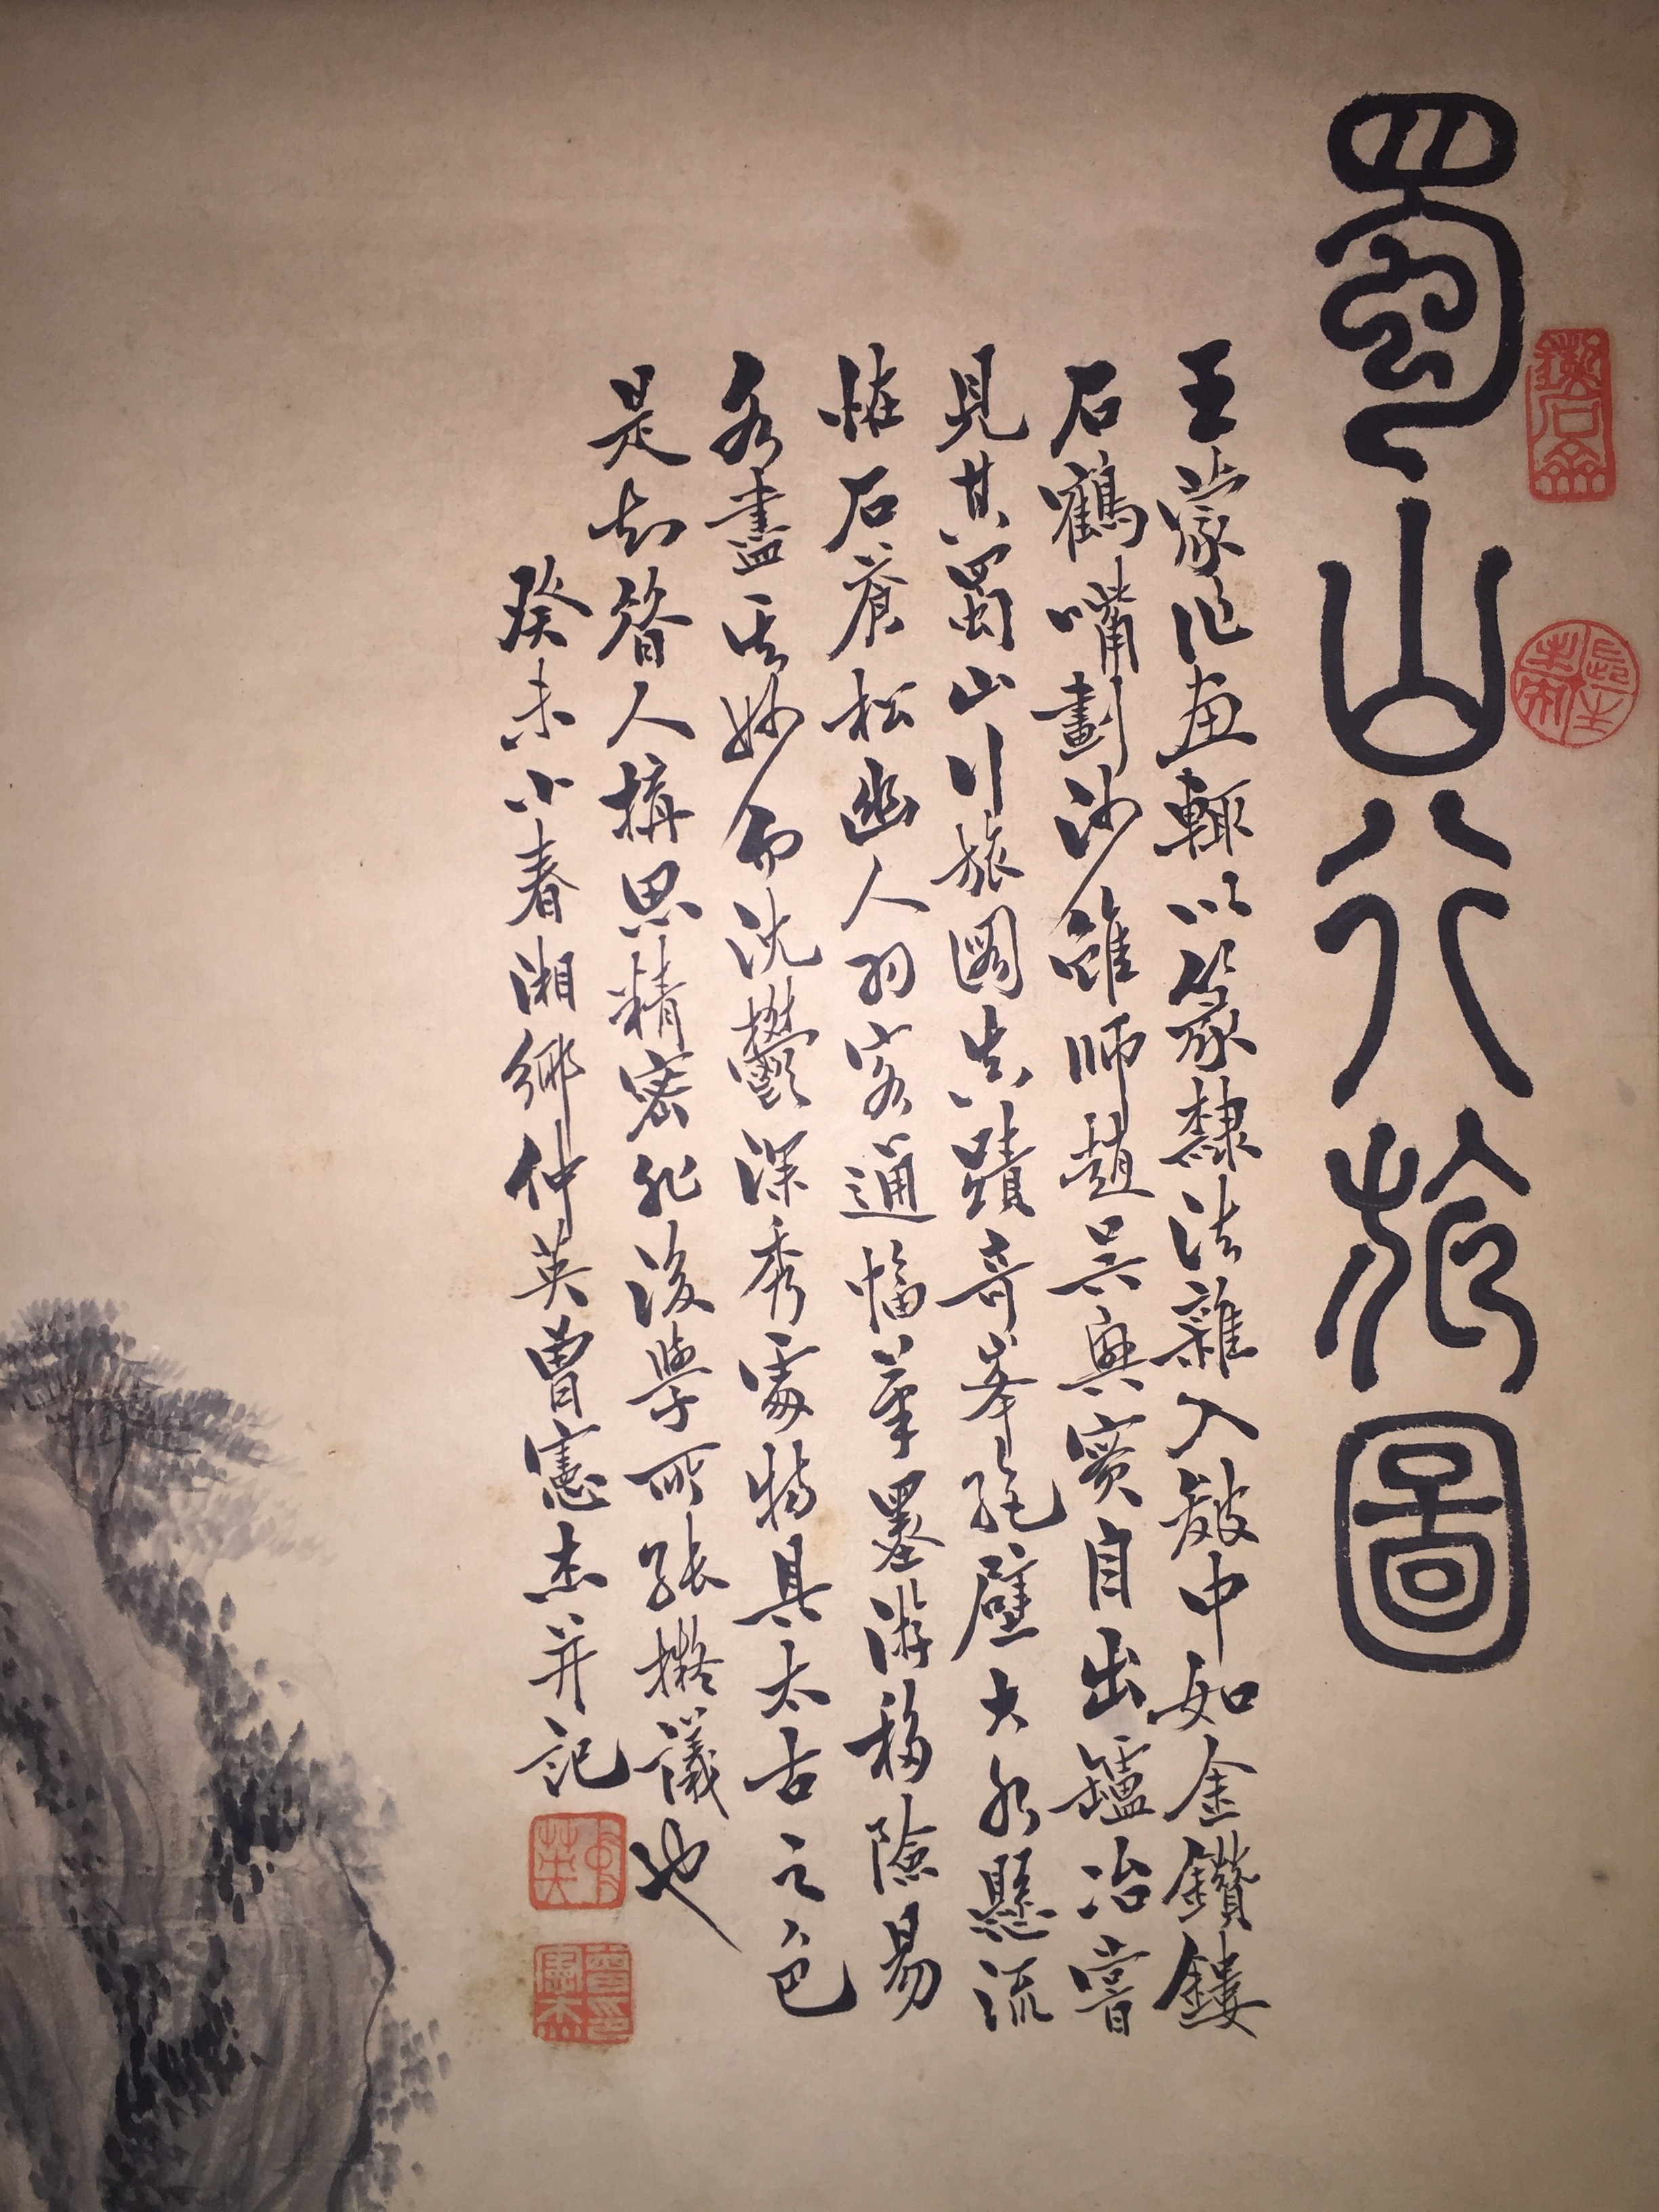 蜀山行旅圖
王蒙作畫輒以篆隸法雜入皴中如金鑽鏤
石鶴嘴劃沙雖師趙吳興實自出鑪冶嘗
見其蜀山行旅圖真蹟奇峯絕壁大水懸流
怪石蒼松幽人羽客通幅筆墨游移險易
各盡其妙而沈鬱深秀處特具太古之色
是知昔人構思精密非後學所能擬議也
癸未小春湘鄉仲英曾憲杰并記
仲英
曾憲杰印